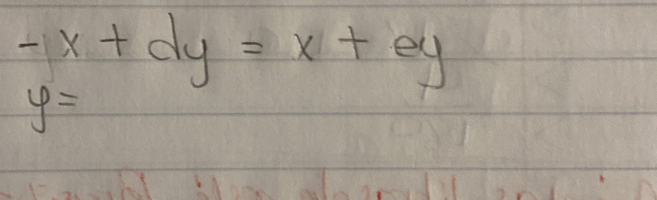 -x + dy = x + ey
y=